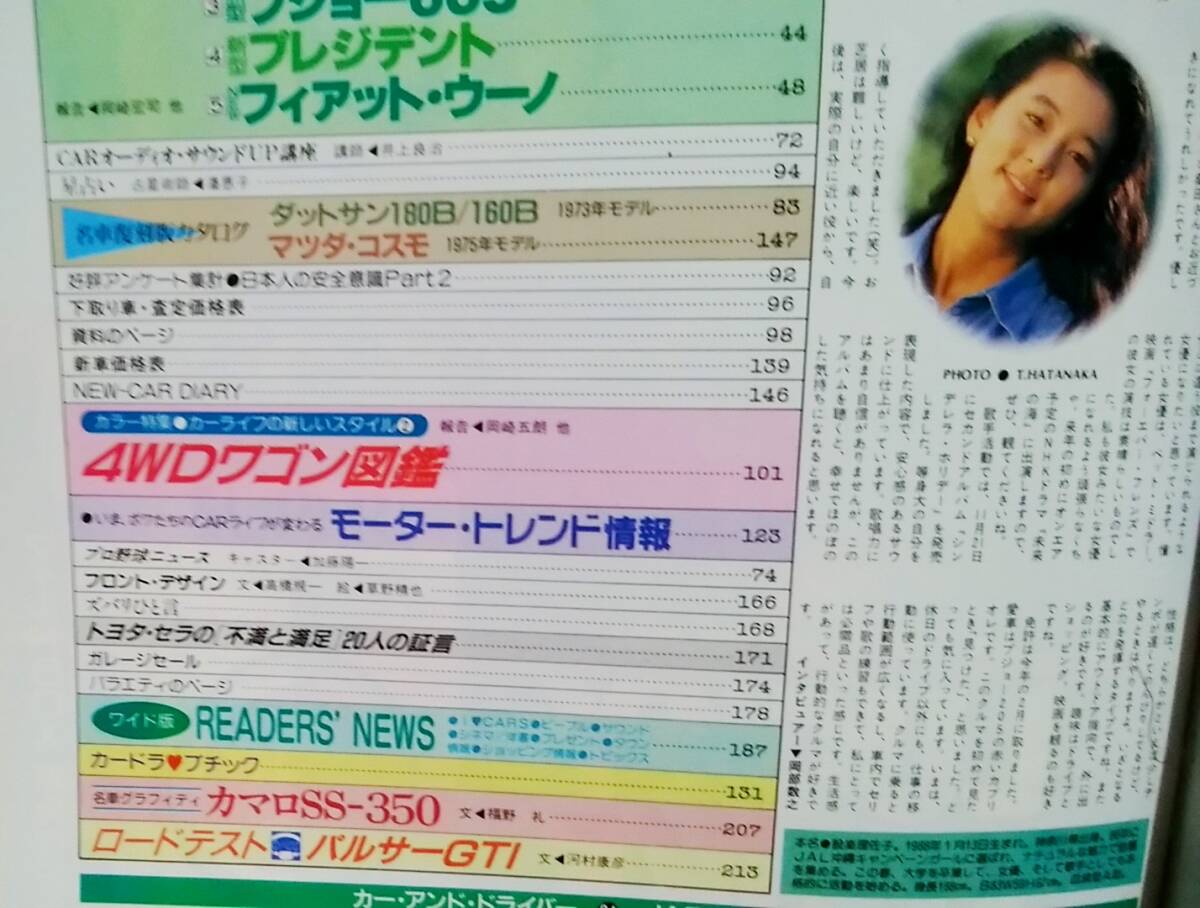 3
4 新型 プレジデント 44
5 フィアット・ウーノ 48
報告◀岡崎宏司 他
CARオーディオ・サウンドUP講座 講師◀井上良治 72
星占い 94
名車復刻版カタログ
ダットサン180B/160B 1973年モデル 83
マツダ・コスモ 1975年モデル 147
好評アンケート集計●日本人の安全意識Part2 92
下取り車・査定価格表 96
資料のページ 98
新車価格表 139
NEW-CAR DIARY 146
カラー特集●カーライフの新しいスタイル2 報告◀岡崎五朗 他
4WDワゴン図鑑 101
●いま、ボクたちのCARライフが変わる モーター・トレンド情報 123
プロ野球ニュース キャスター◀加藤陽一 74
フロント・デザイン 文◀高橋規一 絵◀草野精也 166
ズバリひと言 168
トヨタ・セラの「不満と満足」20人の証言 171
ガレージセール 174
バラエティのページ 178
ワイド版 READERS' NEWS 187
●I♥CARS●ピープル●サウンド
●シネマ/洋書●プレゼント●タウン
情報●ショッピング情報●トピックス
カードラ♥ブチック 131
名車グラフィティ カマロSS-350 文◀福野 礼 207
ロードテスト パルサーGTI 文◀河村康彦 213
カー・アンド・ドライバー
く指導していただきました(笑)。お
芝居は難しいけど、楽しいです。今
後は、実際の自分に近い役から、自
PHOTO ● T.HATANAKA
れている女優は、ベット・ミドラー。
映画『フォーエバー・フレンズ』で
の彼女の演技は素晴らしいものでし
た。私も彼女みたいな女優
になれるよう頑張らなくち
ゃ。来年の初めにオンエア
予定のNHKドラマ『未来
の海』に出演しますので、
ぜひ、観てくださいね。
歌手活動では、11月21日
にセカンドアルバム『シン
デレラ・ホリデー』を発売
しました。等身大の自分を
表現した内容で、安心感のあるサウ
ンドに仕上がっています。歌唱力に
はあまり自信がありませんが、この
アルバムを聴くと、幸せでほのぼの
した気持ちになれると思います。
基本的にアウトドア指向で、外に出
るのが好きです。趣味はドライブと
ショッピング、映画を観るのも好き
ですね。
免許は今年の2月に取りました。
愛車はプジョー205の赤いカブリ
オレです。このクルマを初めて見た
とき、"見つけた"、と思いました。と
っても気に入っています。いまは、
休日のドライブ以外にも、仕事の移
動に使っています。クルマに乗ると
行動範囲が広くなるし、車内でセリ
フや歌の練習もできて、私にとって
は必需品といった感じです。生活感
があって、行動的なクルマが好きで
す。
インタビュアー▼岡部数之
JAL沖縄キャンペーンガールに選ばれ、
を集める。この春、大学を卒業して、女優、そして歌手としても本
格的に活動を始める。